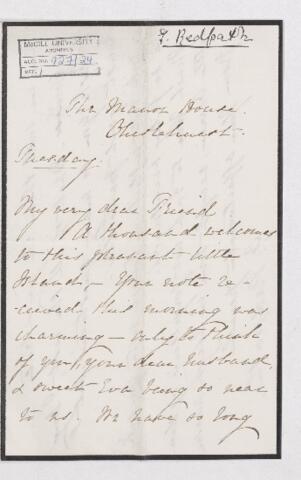 J. Redpath
McGILL UNIVERSITY
ARCHIVES
ACC. NO. 927/24
REF.
The Manor House.
Chislehurst.
Tuesday.
My very dear Friend
A thousand welcomes
to this pleasant little
Island – Your note re-
ceived this morning was
charming – only to think
of you, your dear husband,
& sweet Eva being so near
to us. We have so long